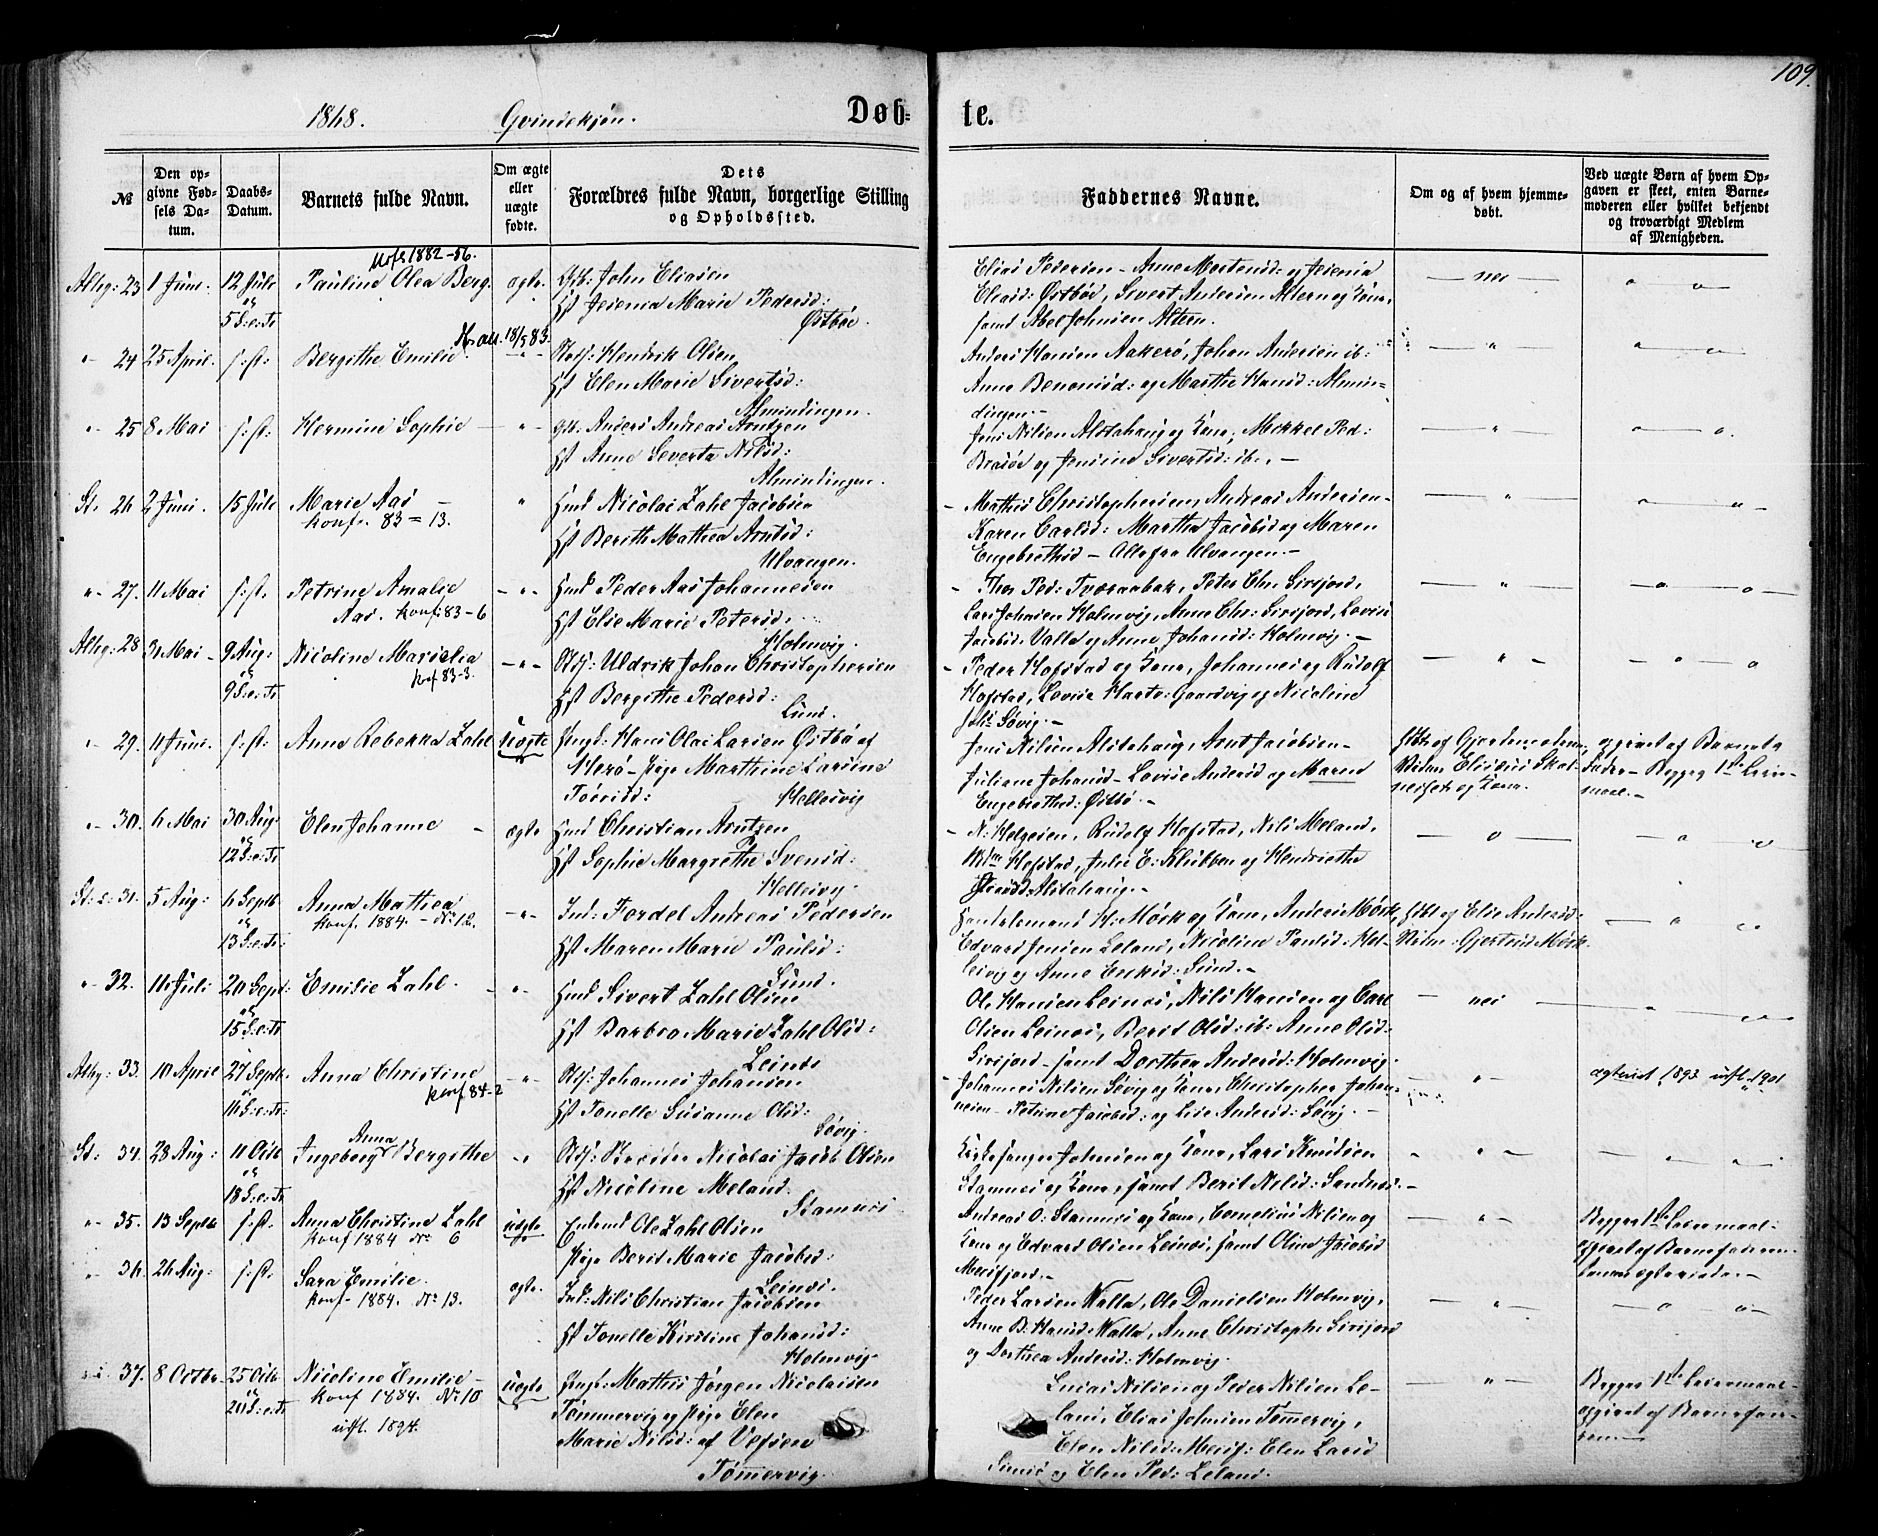 109.
1868. Qvindekjøn. Døb= te.
№
Den op-
givne Fød-
sels Da-
tum.
Daabs-
Datum.
Barnets fulde Navn.
Om ægte
eller
uægte
fødte.
Dets
Forældres fulde Navn, borgerlige Stilling
og Opholdssted.
Faddernes Navne.
Om og af hvem hjemme-
døbt.
Ved uægte Børn af hvem Op-
gaven er skeet, enten Barne-
moderen eller hvilket bekjendt
og troværdigt Medlem
af Menigheden.
1882-56.
Alhg: 23 1 Juni. 12 Juli Pauline Olea Berg. ægte. John Eliasen
5 S. e. Tr. Hst Jesenia Marie Pedersd:
Østbøe.
Elias Pedersen - Anne Mortensd: og Jesenia
Eliasd: Østbøe, Sivert Andersen Altern og Kone,
samt Abel Johnsen Altern.
nei
18/5 83.
24 25 April. s: st: Bergithe Emilie Hendrik Olsen
Hst Elen Marie Sivertsd:
Almindingen.
Anders Hansen Aakerø, Johan Andersen ib:
Anne Benonisd: og Marthe Hansd: Almin-
dingen.-
25 8 Mai s: st: Hermine Sophie Anders Andreas Arntzen
Hst Anne Severta Nilsd:
Almindingen.
Jens Nilsen Alstahaug og Kone, Mikkel Ped:
Brasøe og Jensine Sivertsd: ib., -
St. 26 2 Juni. 15 Juli Marie Aas -
konf. 83 = 13.
Hmd Nicolai Zahl Jacobsen
Hst Berith Mathea Arntsd:
Ulvangen.
Mathis Christophersen, Andreas Andersen-
Karen Carlsd: Martha Jacobsd og Maren
Engebrethsd - Alle fra Ulvangen.-
27. 11 Mai s: st. Petrine Amalie
Aas. konf: 83-6
Hmd Peder Aas Johannesen
Hst Else Marie Petersd.
Holmvig.
Thos Ped: Tværaabak, Peter Chr. Sirifjord,
Lars Johnsen Holmvig, Anne Chr: Sirifjord, Lovise
Jacobsd: Valla og Anne Johansd: Holmvig.-
Alhg: 28 31 Mai - 9 Aug: Nicoline Marselia
9 S: e: Tr. 83-3.
Uldrik Johan Christophersen
Hst Bergithe Pedersd:
Lund.
Peder Hofstad og Kone, Johannes og Rudolf
Hofstad, Lovise Gaardvig og Nicoline
Søvig.-
29. 11 Juni. s: st: Anna Rebekka Zahl uægte Ungk: Hans Olai Larsen Østbø af
Herø - Pige Marthine Larine
Tørrisd: Hellesvig
Jens Nilsen Alstahaug, Arnt Jacobsen-
Juliane Johansd - Lovise Andersd og Maren
Engebrethsd: Østbø.-
hdbt af Gjordemoderen,
Vidner Elisæus Skal-
neset og Kone.
opgivet af Barnets
Fader - Begges 1ste Leier-
maal.-
30. 6 Mai 30 Aug Elen Johanne - ægte Hmd Christian Arntzen
12 S: e: Tr. Hst Sophie Margrethe Svensd:
Hellesvig.
N: Helgesen, Rudolf Hofstad, Nils Meland,
Hofstad, Julie E: Klubben og Hendriette
Alstahaug.-
St: 31. 5 Aug: 6 Septb Anna Mathea
13 S: e: Tr: konf. 1884. - No 12.
Ind: Fordel Andreas Pedersen
Hst Maren Marie Paulsd:
Sund.
Handelsmand H: Mørk og Kone, Anders Mørk,
Edvard Jensen Leland, Nicoline Paulsd: Hel-
lesvig og Anne Eriksd: Sund.-
hdbt af Elie Andersd:
Vidn: Gjertrud Mørk.
32. 16 Juli 20 Sept: Emilie Zahl. Hmd Sivert Zahl Olsen
15 S: e: Tr Hst Barbro Marie Zahl Olsd:
Leines
Ole Hansen Leines, Nils Hansen og Carl
Olsen Leines, Berit Olsd: ib: Anne Olsd:
Sirifjord - samt Dorthea Andersd: Holmvig.
nei
Alhg: 33. 10 April 27 Septb. Anna Christine
16 S: e: Tr: konf 84-2
Johannes Johansen
Hst Tonelle Susanne Olsd:
Søvig.
Johannes Nilsen Søvig og Kone, Christopher Johan-
nesen - Petrine Jacobsd: og Lise Andersd: Søvig.-
ægteviet 1893 utfl. 1901
St: 34. 28 Aug: 11 Octb Ingeborg Anna Bergithe
18 S: e: Tr
Nicolai Jacob Olsen
Hst Nicoline Meland.
Stamnes
Kirkesanger Johnsen og Kone, Lars Knudsen
Stamnes og Kone, samt Berit Nilsd: Sandnes.-
35. 13 Septb s: st: Anna Christine Zahl uægte Enkmd Ole Zahl Olsen
konf 1884 No 6
Pige Berit Marie Jacobsd:
Leines.
Andreas O: Stamnes og Kone, Cornelius Nilsen og
Kone og Edvard Olsen Leines, samt Oline Jacobsd
Meisfjord.-
Begges 1ste Leiermaal.-
opgivet af Barnefaderen.
36. 26 Aug: s: st: Sara Emilie. ægte. Ind: Nils Christian Jacobsen
konf. 1884. No 13.
Hst Tonelle Kirstine Johansd:
Holmvig.
Peder Larsen Walla, Ole Danielsen Holmvig,
Anne B: Hansd: Walla, Anne Christoph: Sirifjord
og Dorthea Andersd: Holmvig.
37. 8 Octbr. 25 Octb Nicoline Emilie - uægte Ungk: Mathis Jørgen Nicolaisen
20 S: e: Tr konf 1884. No 10
utfl. 1894.
Tømmervig og Pige Elen
Marie Nilsd: af Vefsen
Tømervig.
Lucas Nilsen og Peder Nilsen Le-
land, Elias Johnsen Tømervig,
Elen Nilsd: Meisf: Elen Larsd
og Elen Ped: Leland.
Begges 1ste Leiermaal-
opgivet af Barnefade-
ren.-